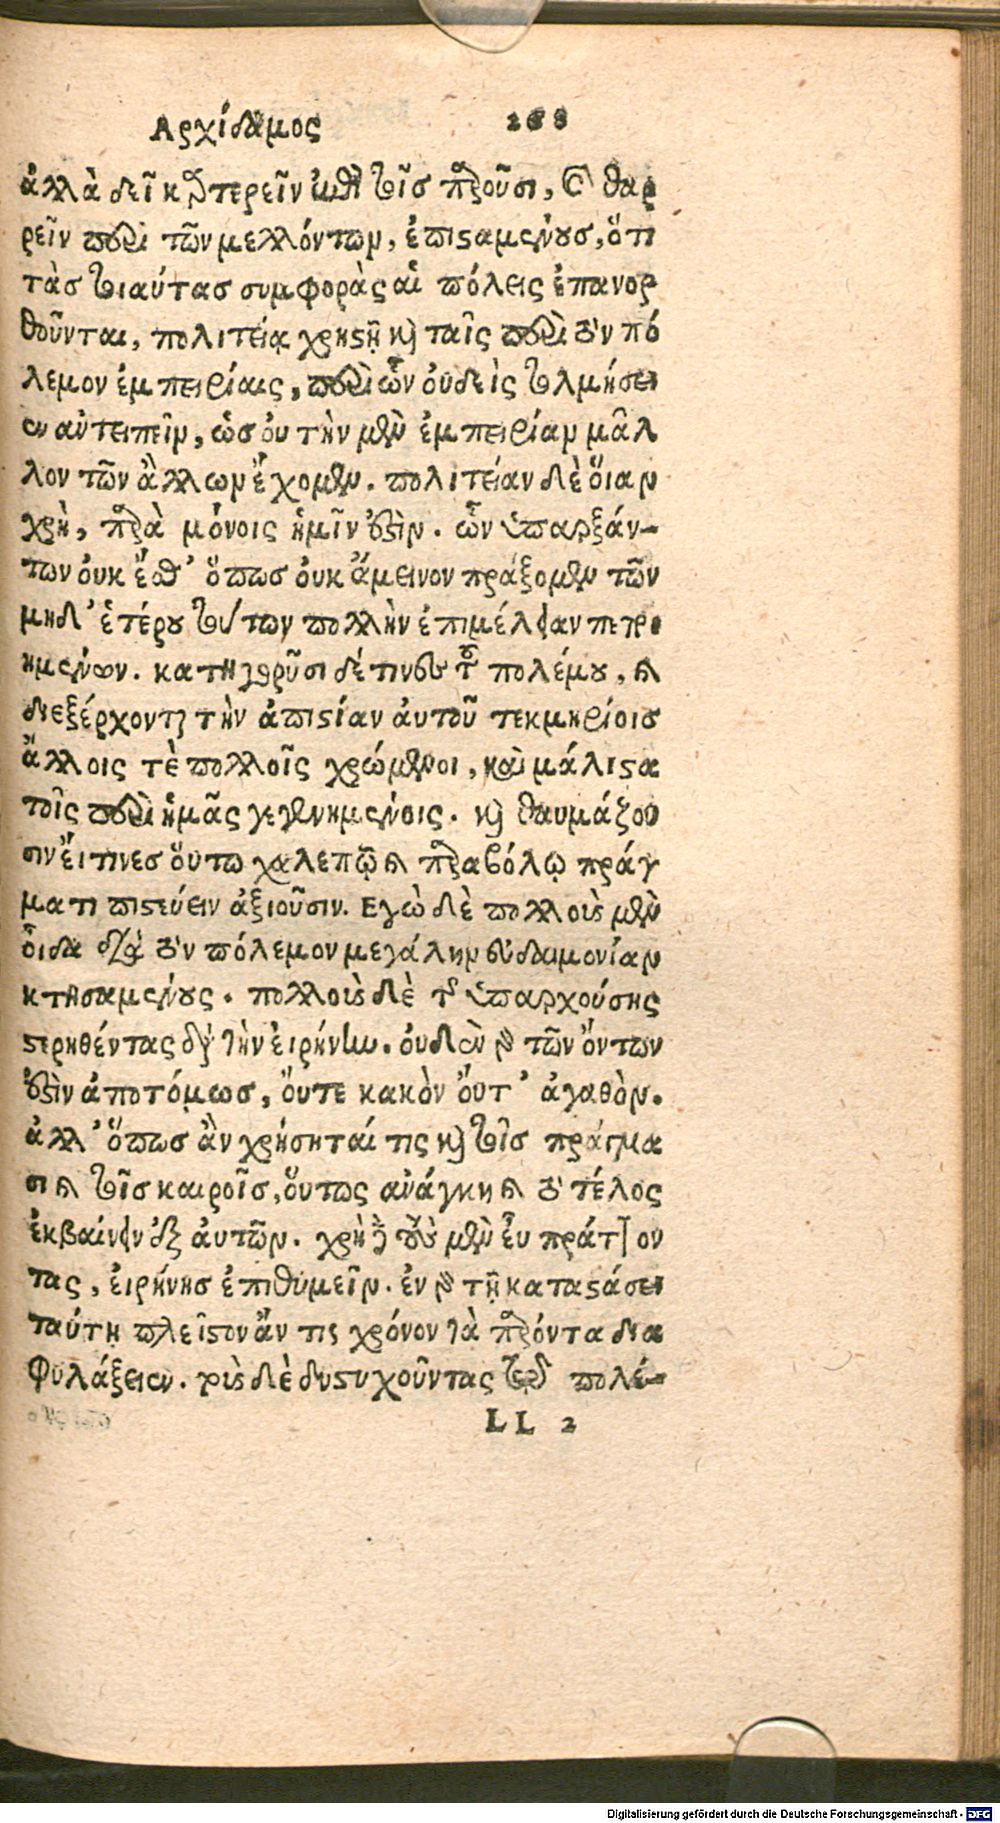 Αρχίδαμος 268
ἀλλὰ δεῖ καρτερεῖν ἐπὶ τοῖσ παροῦσι, καὶ θαρ
ρεῖν περὶ τῶν μελλόντων, ἐπισταμένουσ, ὅτι
τὰσ τοιαύτασ συμφορὰς αἱ πόλεις ἐπανορ
θοῦνται, πολιτείᾳ χρηστῇ καὶ ταῖς περὶ τὸν πό
λεμον ἐμπειρίαις, περὶ ὧν οὐδεὶς τολμήσει
εν ἀντειπεῖν, ὡσ ὀυ τὴν μὲν ἐμπειρίαν μᾶλ
λον τῶν ἄλλων ἔχομεν. πολιτείαν δὲ ὅιαν
χρὴ, παρὰ μόνοις ἡμῖν ἐστὶν. ὧν ὑπαρξάν-
των ὀυκ ἔσθ' ὅπωσ ὀυκ ἄμεινον πράξομεν τῶν
μηδ' ἑτέρου τούτων πολλὴν ἐπιμέλειαν πεποι
ημένων. κατηγοροῦσι δέ τινες τοῦ πολέμου, καὶ
διεξέρχονται τὴν ἀπιστίαν ἀυτοῦ τεκμηρίοισ
ἄλλοις τὲ πολλοῖς χρώμενοι, καὶ μάλιστα
τοῖς περὶ ἡμᾶς γεγενημένοις. καὶ θαυμάζου
σιν ἔιτινεσ ὅυτω χαλεπῷ καὶ παραβόλῳ πράγ
ματι πιστεύειν ἀξιοῦσιν. Εγὼ δὲ πολλοὺς μὲν
ὄιδα διὰ τὸν πόλεμον μεγάλην εὐδαιμονίαν
κτησαμένους. πολλοὺς δὲ τῆς ὑπαρχούσης
στερηθέντας διὰ τὴν ἐιρήνην. ὀυδὲν γὰρ τῶν ὄντων
ἐστὶν ἀποτόμωσ, ὄυτε κακὸν ὄυτ' ἀγαθὸν.
ἀλλ' ὅπωσ ἂν χρήσηταί τις καὶ τοῖσ πράγμα
σι καὶ τοῖσ καιροῖσ, ὅυτως ἀνάγκη καὶ τὸ τέλος
ἐκβαίνειν ἐξ ἀυτῶν. χρὴ δὲ τοὺς μὲν ἐυ πράττον
τας, ἐιρήνησ ἐπιθυμεῖν. ἐν γὰρ τῇ καταστάσει
ταύτῃ πλεῖστον ἄν τις χρόνον τὰ παρόντα δια
φυλάξειεν. τοὺς δὲ δυστυχοῦντας τῷ πολέ-
LL 2
Digitalisierung gefördert durch die Deutsche Forschungsgemeinschaft - DFG